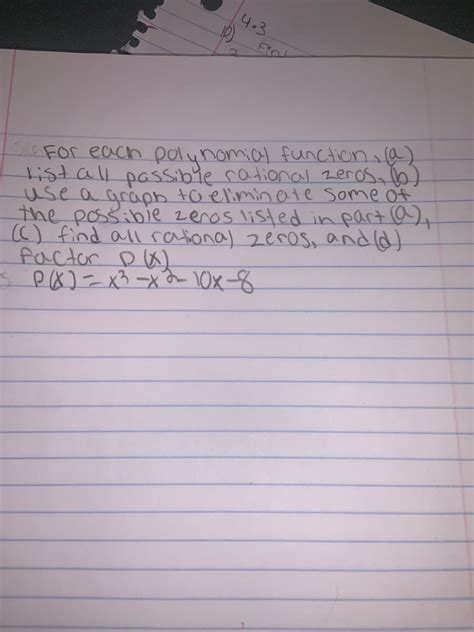 10) 4.3
For each polynomial function, (a)
list all possible rational zeros, (b)
use a graph to eliminate some of
the possible zeros listed in part (a),
(c) find all rational zeros, and (d)
factor P(x)
P(x) = x³ - x² - 10x - 8